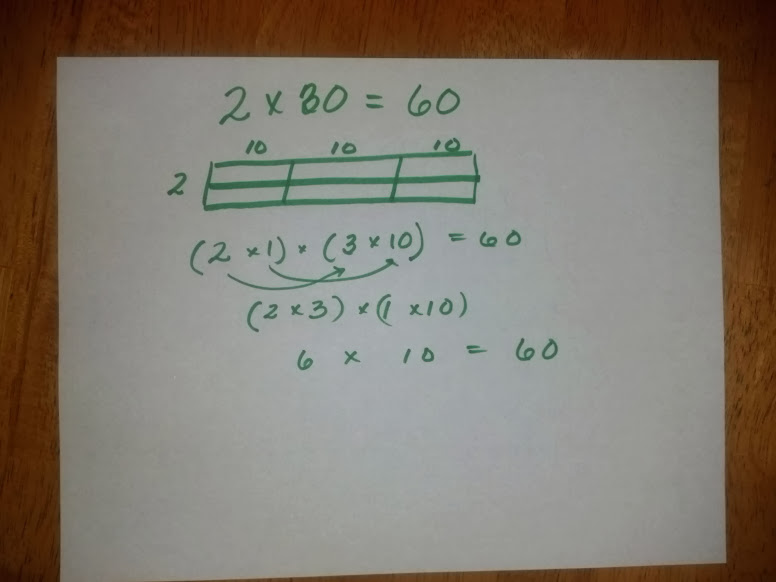 2 × 30 = 60
10 10 10
2
(2 × 1) × (3 × 10) = 60
(2 × 3) × (1 × 10)
6 × 10 = 60